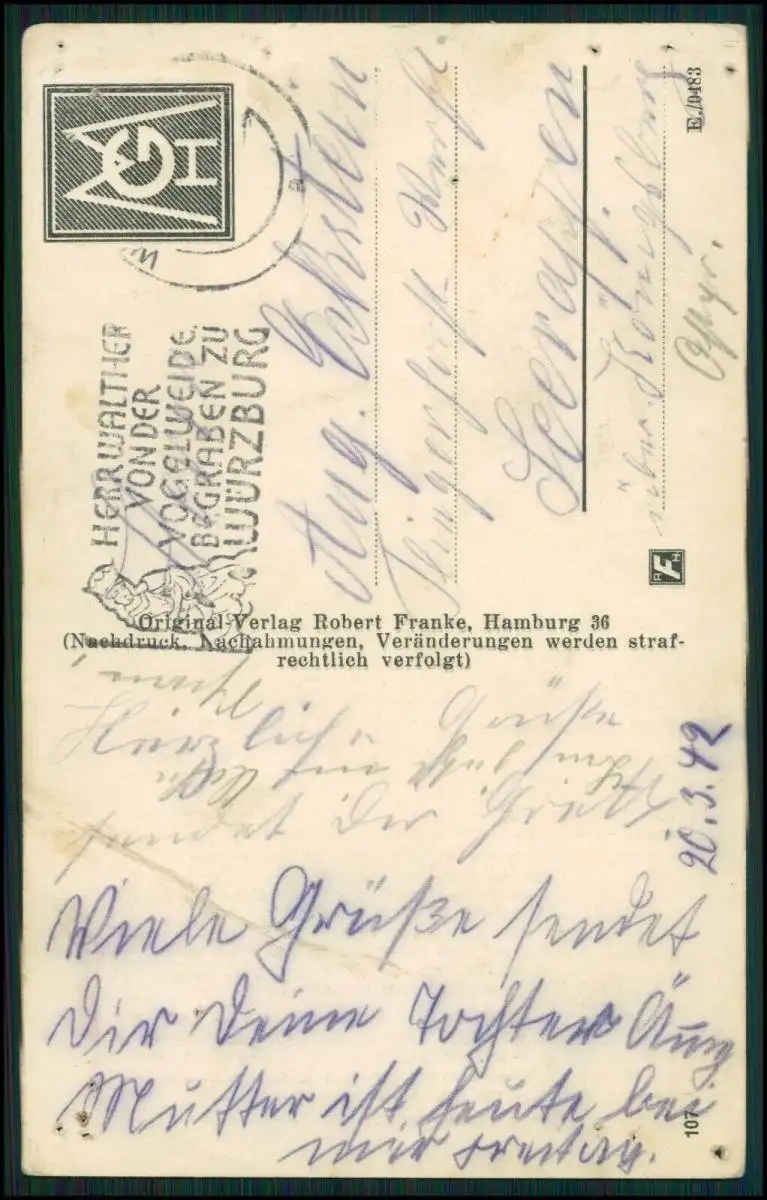 MGH
HERR WALTHER
VON DER
VOGELWEIDE.
BEGRABEN ZU
WÜRZBURG
Aug. Eckstein
Fliegerhorst
Seerappen
über Königsberg
Ospr.
E./0483
AFH
Original-Verlag Robert Franke, Hamburg 36
(Nachdruck, Nachahmungen, Veränderungen werden straf-
rechtlich verfolgt)
Herzliche Grüße
sendet Dir
20.3.42
Viele Grüße sendet
Dir Deine Tochter
Mutter ist heute bei
mir Freitag.
107